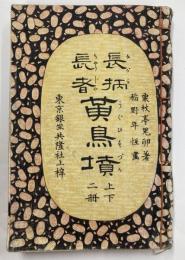 栗杖亭鬼卵著
稲野年恒畫
長柄
長者
黄鳥墳
上下
二冊
東京銀座共隆社上梓